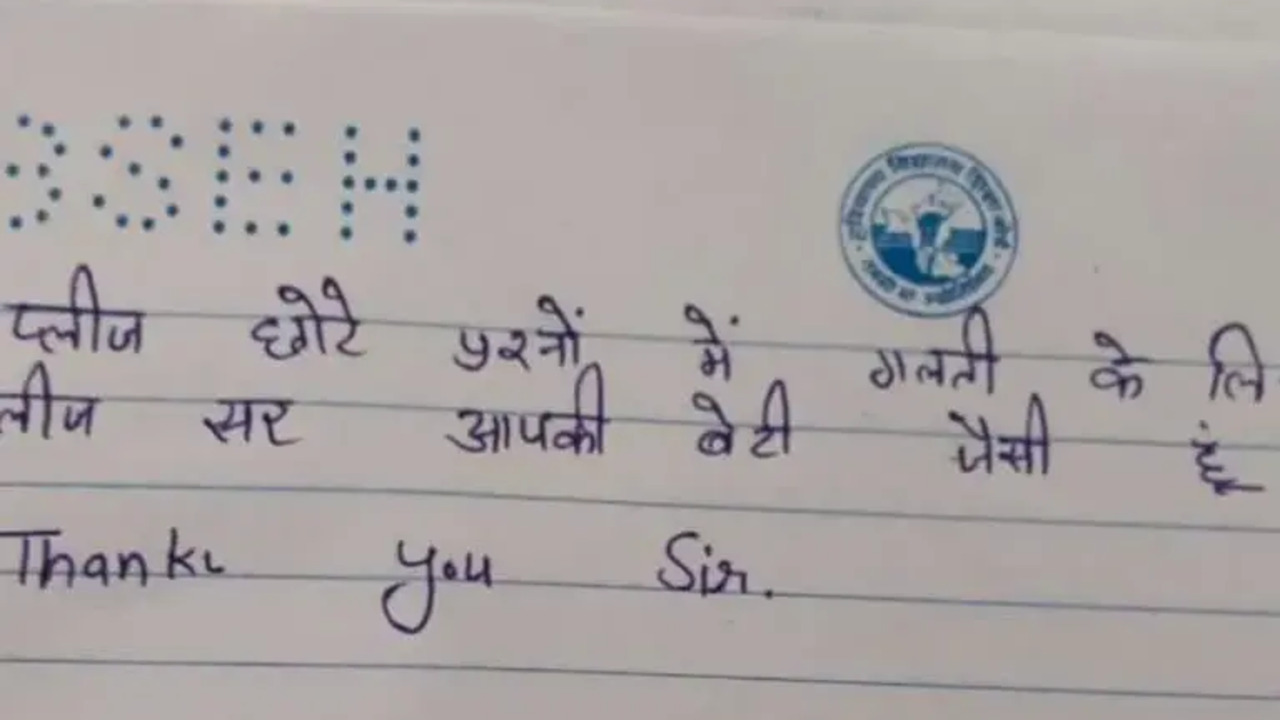 BSEH
हरियाणा विद्यालय शिक्षा बोर्ड
प्लीज छोटे प्रश्नों में गलती के लि
लीज सर आपकी बेटी जैसी हूं
Thanku you Sir.